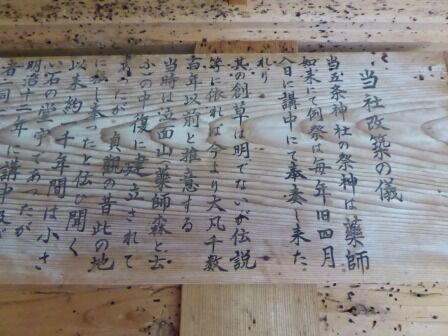 当社改築の儀
当五条神社の祭神は薬師
如来にて例祭は毎年旧四月
八日に講中にて奉奏し来た
れり
其の創草は明でないが伝説
等に依れば今より大凡千数
百年以前と推意する
当時は泣面山薬師森と云
ふ の中復に建立されて
たが貞観の昔此の地
に 奉ったと伝ひ聞く
以来約一千年間は小さ
い石の堂宇であったが
明治十二年に講中